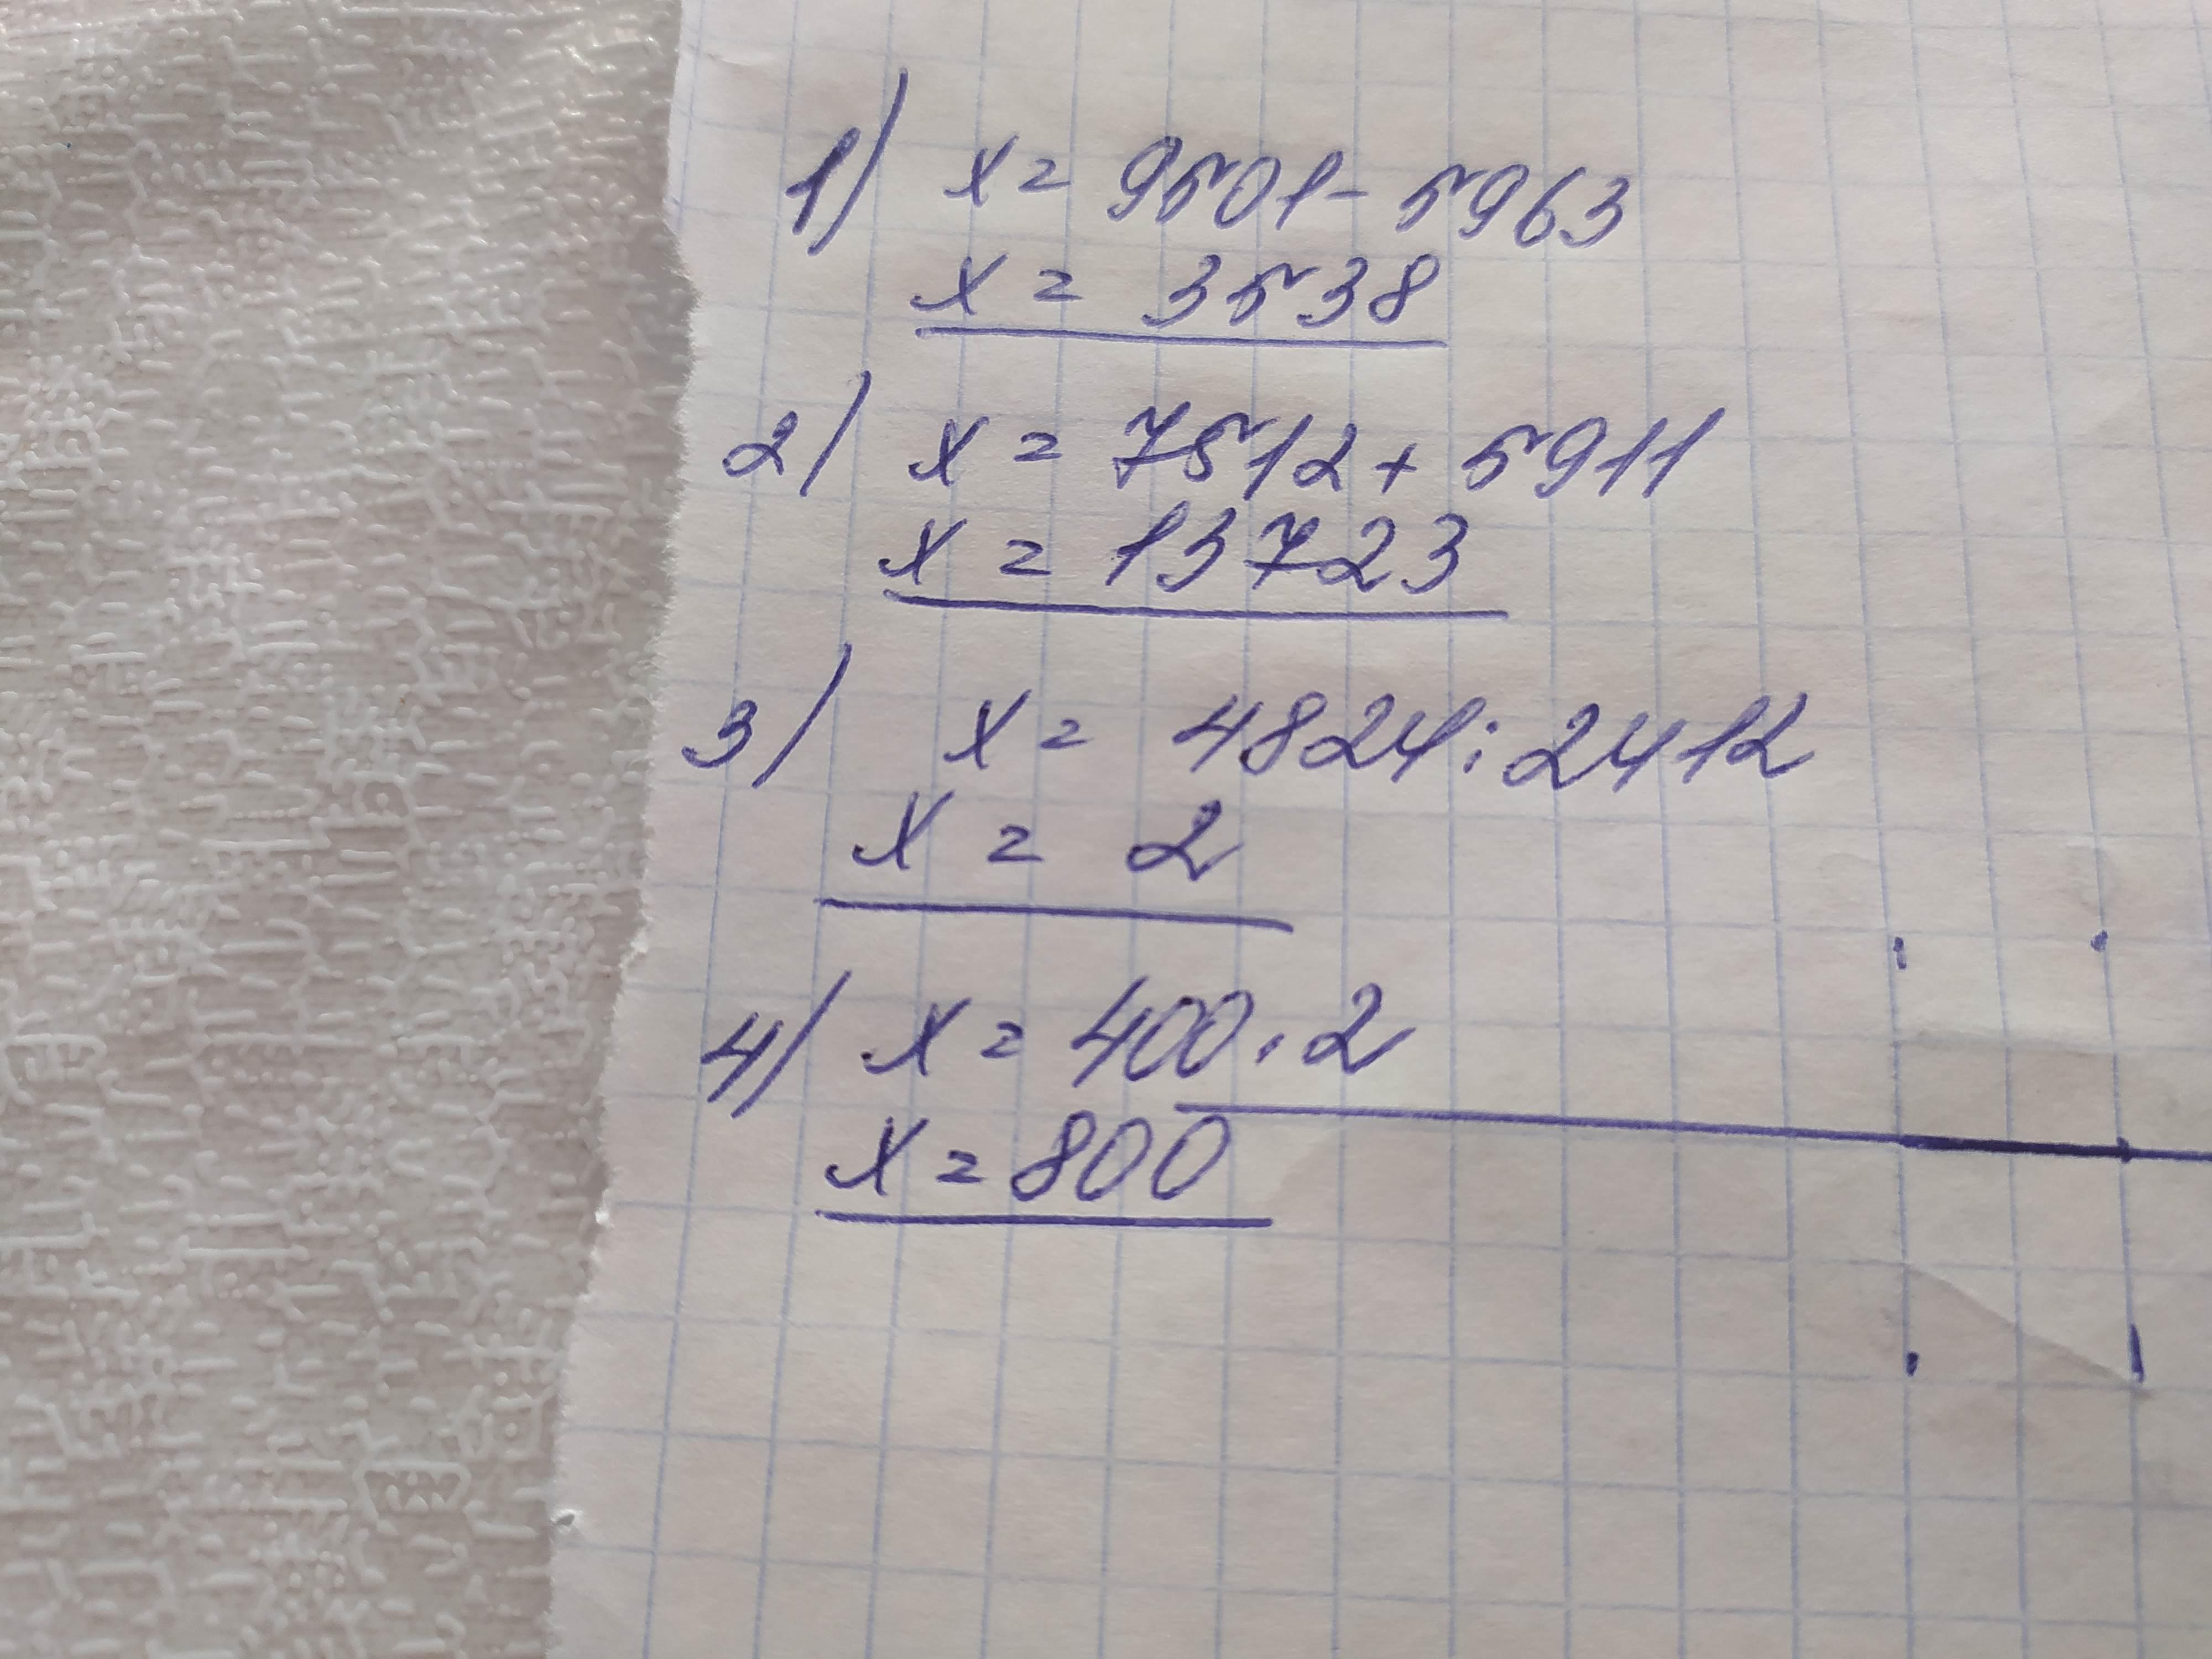 1) x = 9501 - 5963
x = 3538
2) x = 7512 + 5911
x = 13723
3) x = 4824 : 2412
x = 2
4) x = 400 · 2
x = 800